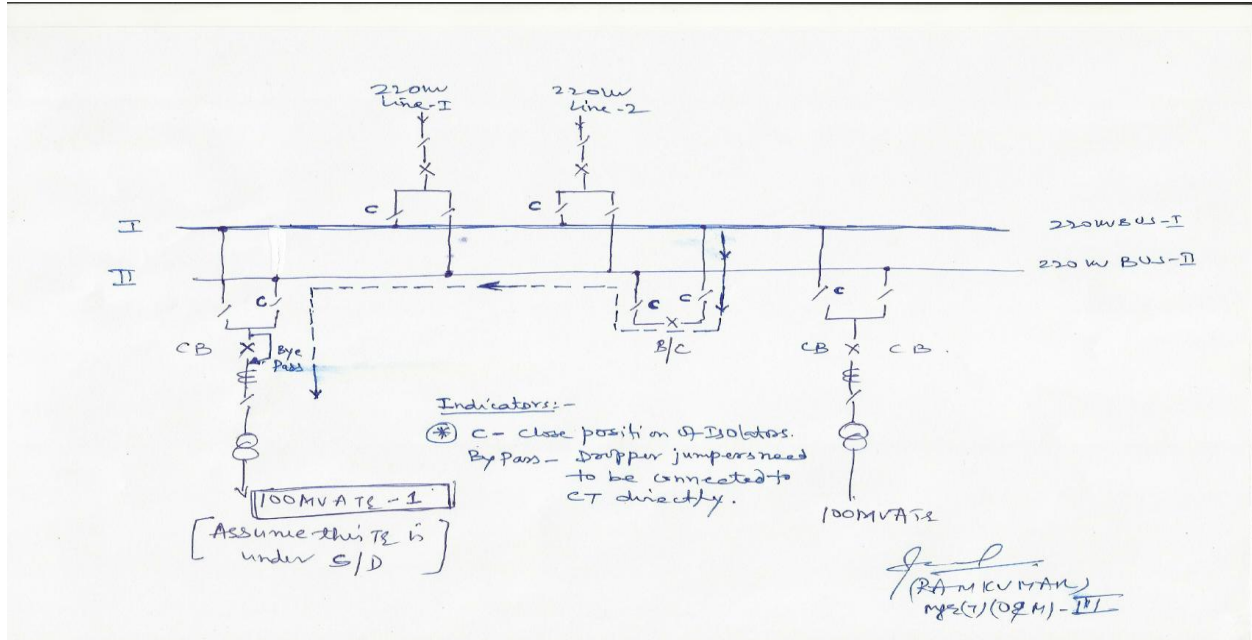 220kv
Line-I
220kv
Line-2
C
C
I
220kv BUS-I
II
220 kv BUS-II
C
C
C
C
CB
Bye
Pass
B/C
CB
CB.
Indicators:-
* C - Close position of Isolators.
By Pass - Dropper jumpers need
to be connected to
CT directly.
100MVA TR-1
[Assume this TR is
under S/D]
100MVA TR
(RAMKUMAR)
(O&M)-III